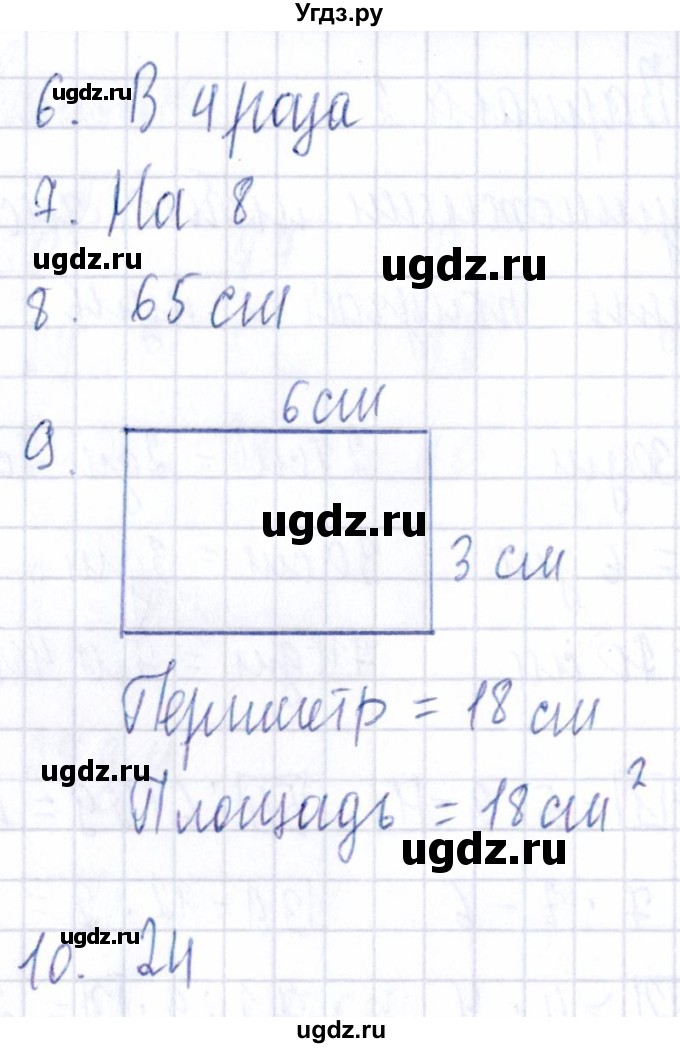 Угдз.ру
ugdz.ru
6. В 4 раза
7. На 8
ugdz.ru
ugdz.ru
8. 65 см
6 см
9.
ugdz.ru
3 см
Периметр = 18 см
ugdz.ru
Площадь = 18 см²
ugdz.ru
ugdz.ru
10. 24
ugdz.ru